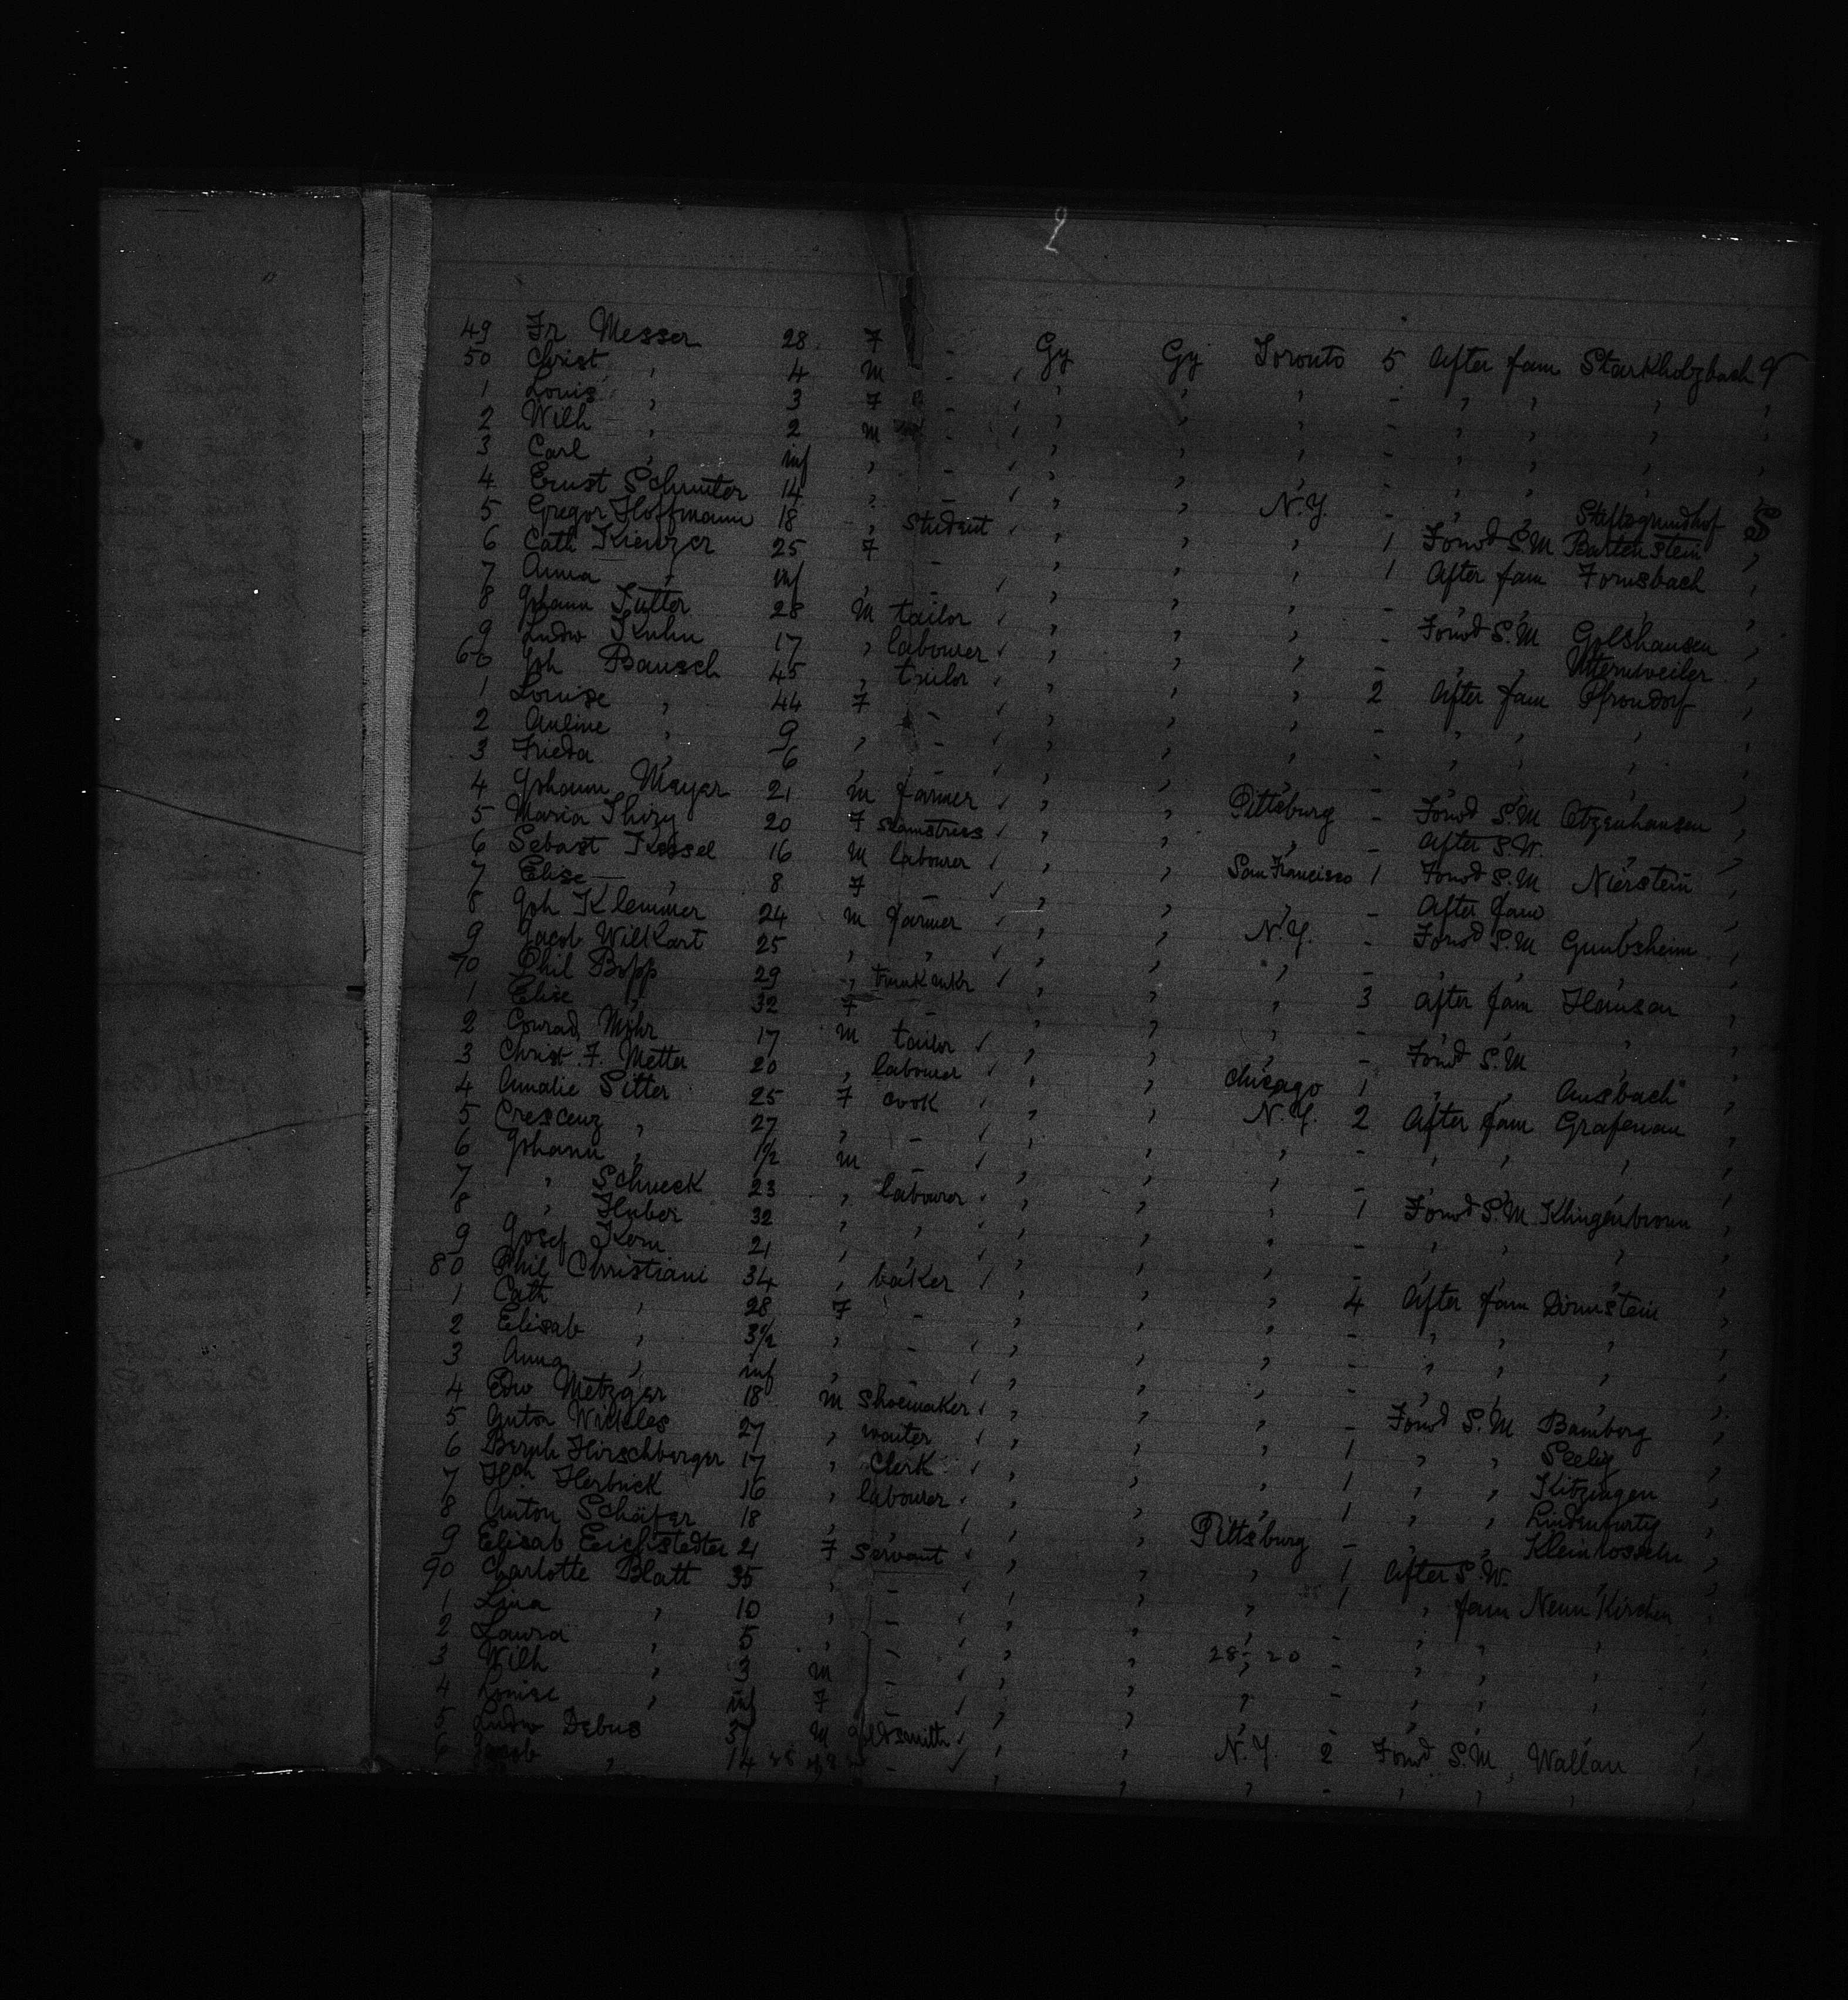 2
49 Fr Messer 28 F - Gy Gy Toronto 5 After fam Starkholzbach
50 Christ , 4 m - , , , , - , , , ,
1 Louis , 3 F - , , , , - , , , ,
2 Wilh , 2 m - , , , , - , , , ,
3 Carl , inf , - , , , , - , , , ,
4 Ernst 14 , - , , , N.Y. - , , Stiftsgrundhof S
5 Gregor Hoffmann 18 , student , , , , 1 Forwd S.M Bartenstein ,
6 Cath Kienzer 25 F - , , , , 1 After fam Fornsbach ,
7 Anna , inf , - , , , , - , , , ,
8 Johann Sutter 28 m tailor , , , , - Forwd S.M ,
9 Ludw Kuhn 17 , labourer , , , , - , , ,
60 Joh Bausch 45 , tailor , , , , 2 After fam Pfrondorf ,
1 Louise , 44 F - , , , , - , , , ,
2 Auline , 9 , - , , , , - , , , ,
3 Frieda , 6 , - , , , , - , , , ,
4 Johann Mayer 21 m farmer , , , Pittsburg - Forwd S.M Otzenhausen ,
5 Maria 20 F seamstress , , , , - After S.W. , ,
6 Sebast Kessel 16 m labourer , , , San Francisco 1 Forwd S.M Nierstein ,
7 Elise , 8 F - , , , , - After fam , ,
8 Joh Klemmer 24 m farmer , , , N.Y. - Forwd S.M Gumbsheim ,
9 Jacob Willkart 25 , , , , , , - , , , ,
70 Phil Bopp 29 , , , , , 3 After fam ,
1 Elise , 32 F - , , , , - , , , ,
2 Conrad Mohr 17 m tailor , , , , - Forwd S.M , ,
3 Christ. F. Metter 20 , labourer , , , Chicago 1 , , Ansbach ,
4 Amalie Sitter 25 F cook , , , N.Y. 2 After fam Grafenau ,
5 Crescenz , 27 , - , , , , - , , , ,
6 Johann , 1½ m - , , , , - , , , ,
7 , Schneck 23 , labourer , , , , 1 Forwd S.M Klingenbrunn ,
8 , Huber 32 , , , , , , - , , , ,
9 Josef Kern 21 , , , , , , - , , , ,
80 Phil Christiani 34 , baker , , , , 4 After fam Dirmstein ,
1 Cath , 28 F - , , , , - , , , ,
2 Elisab , 3½ , - , , , , - , , , ,
3 Anna , inf , - , , , , - , , , ,
4 Edw Metzger 18 m shoemaker , , , , - Forwd S.M Bamberg ,
5 Anton 27 , waiter , , , , 1 , , Seelig ,
6 Bernh Hirschberger 17 , Clerk , , , , 1 , , Kitzingen ,
7 Hch Herbrick 16 , labourer , , , , 1 , , ,
8 Anton Schäfer 18 , , , , , Pittsburg - , , Kleinrosseln ,
9 Elisab Eichstedter 21 F Servant , , , , 1 After S.W.
90 Charlotte Blatt 35 , - , , , , 1 , fam Neun Kirchen
1 Lina , 10 , - , , , , - , , , ,
2 Laura , 5 , - , , , 28-20 - , , , ,
3 Wilh , 3 m - , , , , - , , , ,
4 Louise , inf F - , , , , - , , , ,
5 Ludw Debus 37 m goldsmith , , , N.Y. 2 Forwd S.M , Wallau
6 Jacob , 14 - , , , , - , , , ,